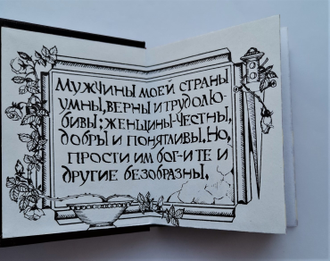 Мужчины моей страны
умны, верны и трудолю-
бивы; женщины-честны,
добры и понятливы. Но,
прости им бог-и те и
другие безобразны.